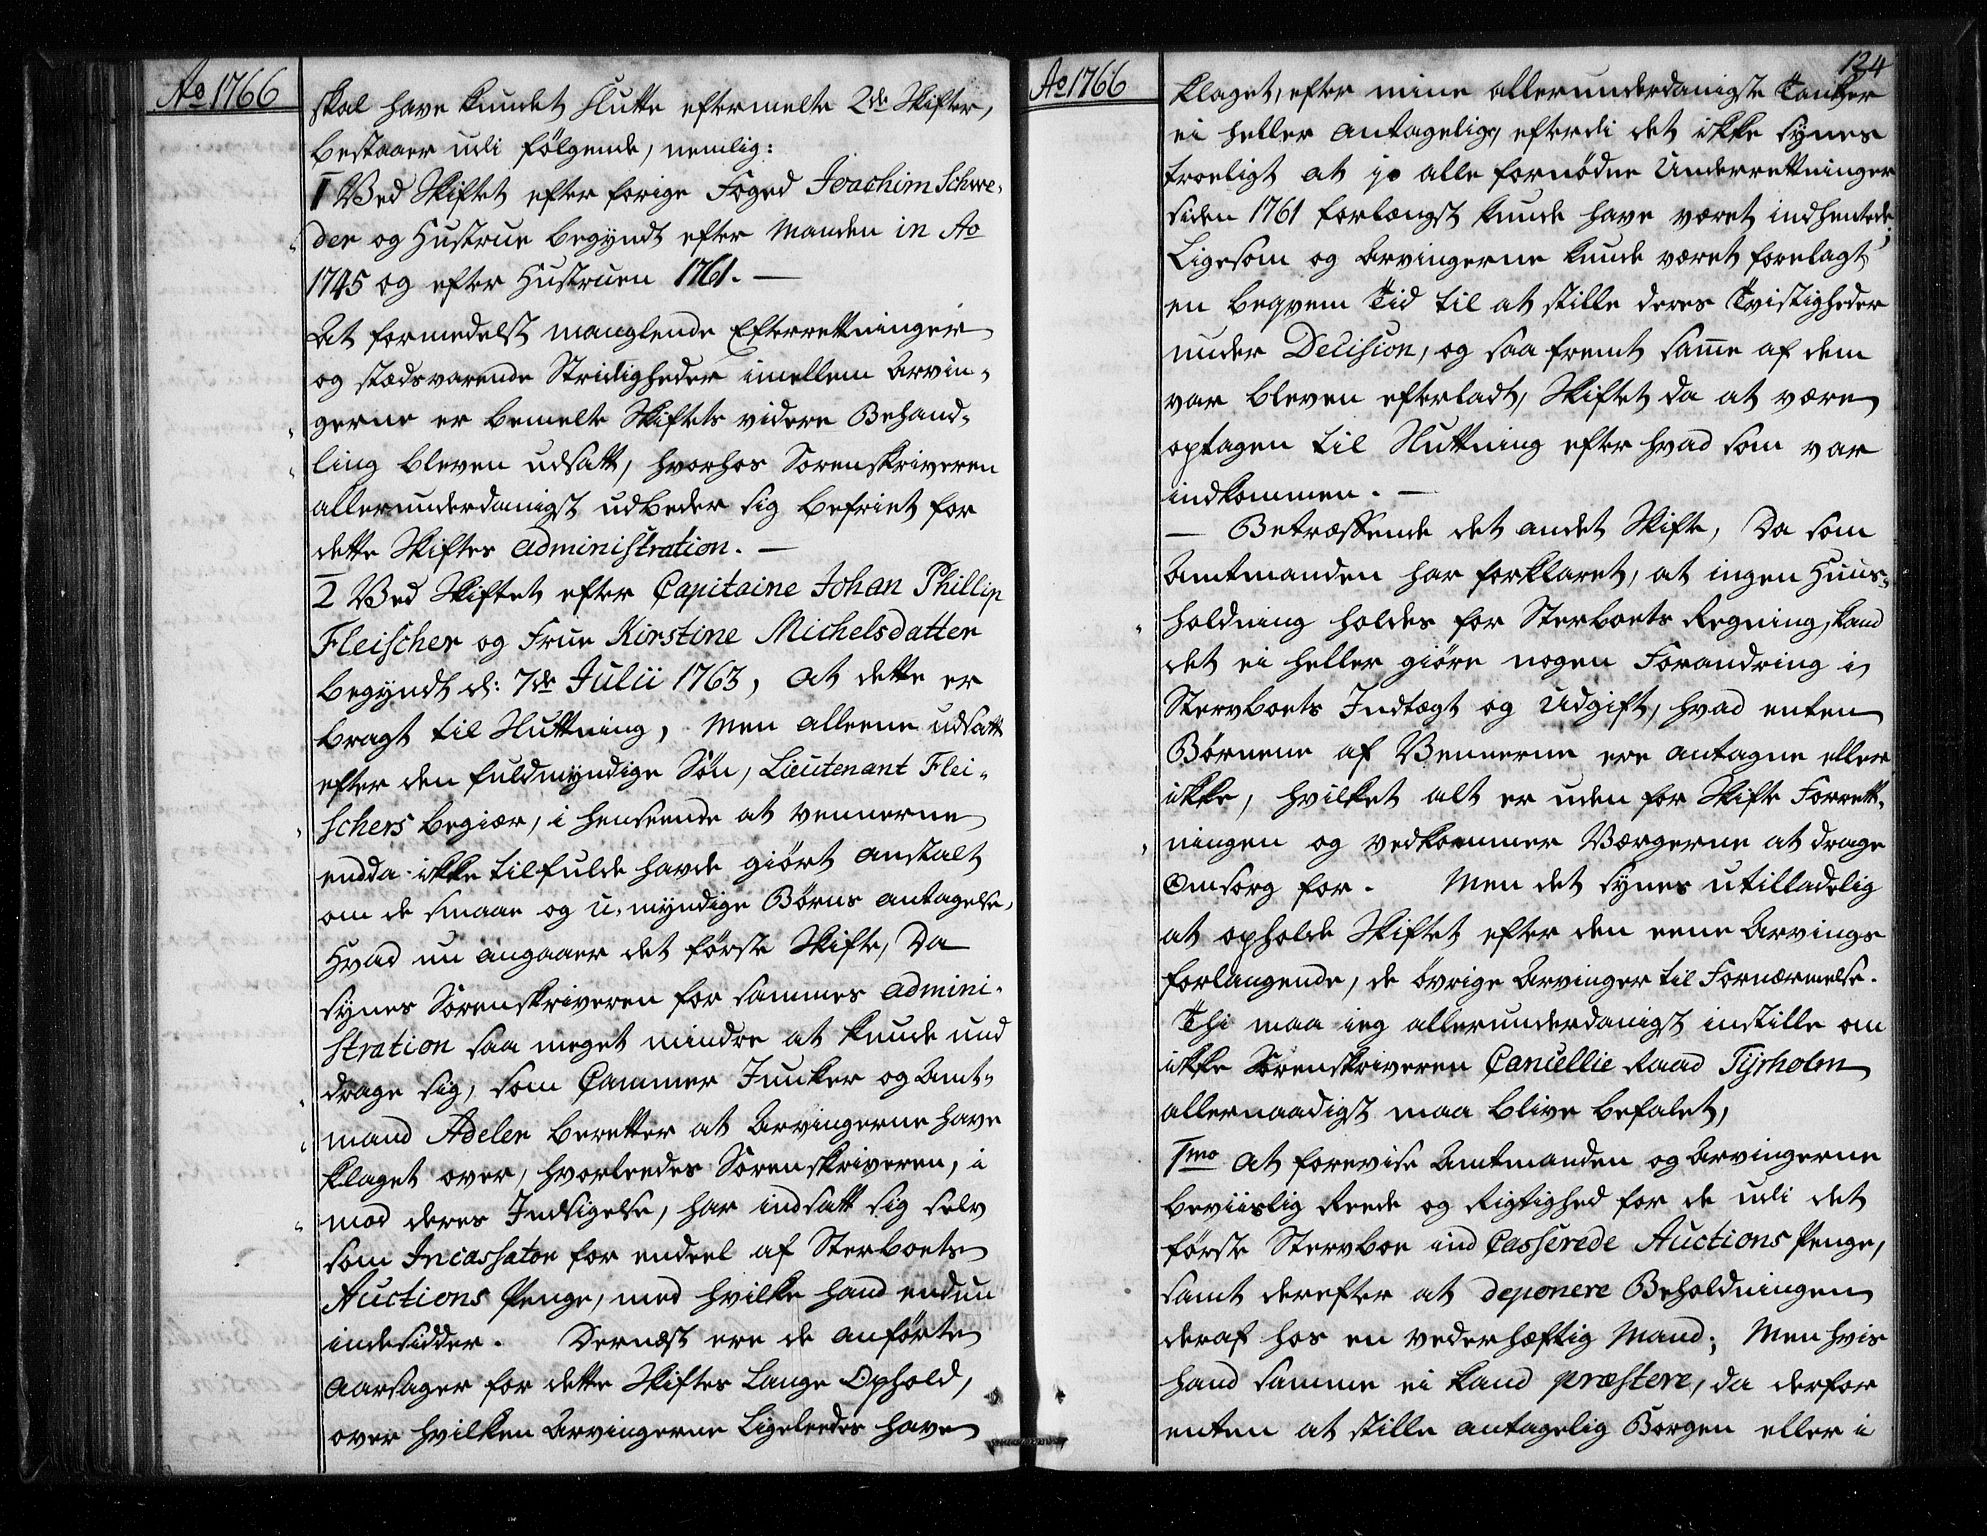 Ao 1766
skal have kundet slutte eftermelte 2de Skifter,
bestaaer udi følgende, nemlig:
1 Ved Skiftet efter forige Foged Joachim Schwe-
der og Hustrue begyndt efter Manden in Ao
1745 og efter Hustruen 1761. —
At formedelst manglende Efterretninger
og stædsvarende Stridigheder imellem Arvin-
gerne er bemelte Skiftets videre Behand-
ling bleven udsatt, hvorhos Sorenskriveren
allerunderdanigst udbeder sig befriet for
dette Skiftes Administration. —
2 Ved Skiftet efter Capitaine Johan Phillip
Fleischer og Frue Kirstine Michelsdatter
begyndt d: 7de Julii 1763, at dette er
bragt til Slutning, Men alleene udsatt
efter den fuldmyndige Søn, Lieutenant Flei-
schers begiær, i henseende at Vennerne
endda ikke tilfulde havde giørt anstalt
om de smaae og u-myndige Børns antagelse,
Hvad nu angaaer det første Skifte, Da
synes Sorenskriveren for sammes Admini-
stration saa meget mindre at kunde und
drage sig, som Cammer Junker og Amt-
mand Adeler beretter at Arvingerne have
klaget over, hvorledes Sorenskriveren, i
mod deres Indsigelse, har indsatt sig selv
som Incassator for endeel af Sterboets
Auctions Penge, med hvilke hand endnu
indesidder. Dernæst ere de anførte
Aarsager for dette Skiftes Lange Ophold,
over hvilken Arvingerne Ligeleedes have
Ao 1766
134
klaget, efter mine allerunderdanigste Tanker
ei heller antagelig, efterdi det ikke synes
troeligt at jo alle fornødne Underretninger
siden 1761 forlængst kunde have været indhentede;
Ligesom og Arvingerne kunde været forelagt
en beqvem Tid til at stille deres Tvistigheder
under Decision, og saa fremt same af dem
var bleven efterladt, Skiftet da at være
optagen til Slutning efter hvad som var
indkommen. —
— Betræffende det andet Skifte, Da som
Amtmanden har forklaret, at ingen Huus-
holdning holdes for Sterboets Regning, kand
det ei heller giøre nogen Forandring i
Stervboets Indtægt og Udgift, hvad enten
Børnene af Vennerne ere antagne eller
ikke, hvilket alt er uden for Skifte Forrett-
ningen og vedkommer Værgerne at drage
Omsorg for. Men det synes utilladelig
at opholde Skiftet efter den eene Arvings
forlangende, de øvrige Arvinger til Fornærmelse.
Thi maa ieg allerunderdanigst instille om
ikke Sorenskriveren Cancellie Raad Tyrholm
allernaadigst maa blive befalet,
1mo At forevise Amtmanden og Arvingerne
beviislig Reede og Rigtighed for de udi det
første Stervboe ind Casserede Auctions Penge,
samt derefter at deponere Beholdningen
deraf hos en vederhæftig Mand; Men hvis
hand samme ei kand præstere, da derfor
enten at stille antagelig Borgen eller i